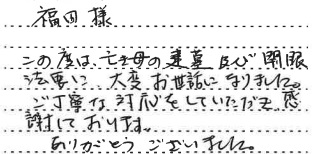 福田 様
この度は、亡き母の建墓及び開眼
法要に、大変お世話になりました。
ご丁寧な対応をしていただき、感
謝しております。
ありがとうございました。